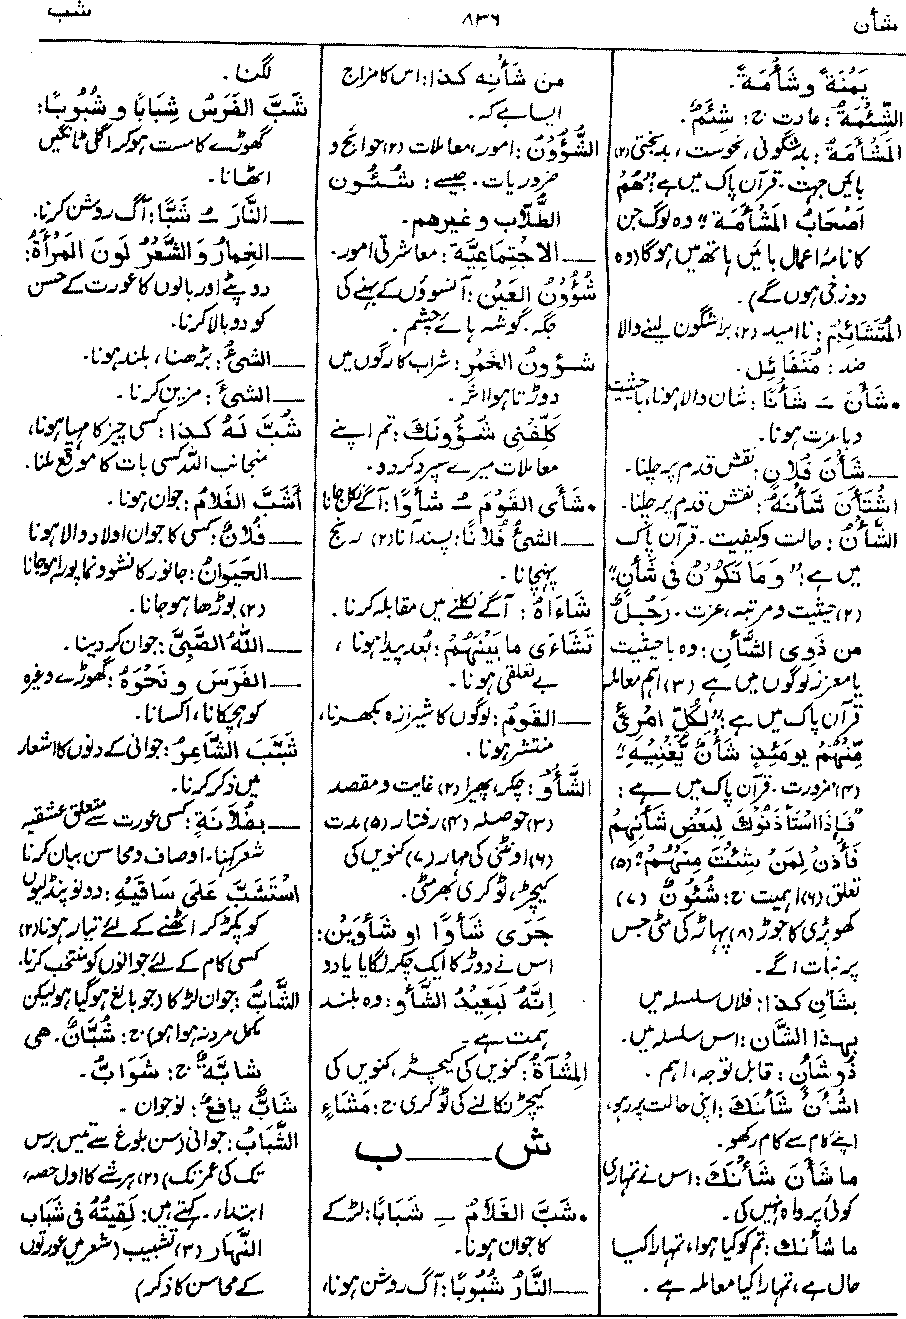 شأن
٨٣٦
شب
يَمْنَةً وشَأْمَةً.
الشِّئْمَةُ: عادت ج: شِئَمٌ.
المَشْأَمَةُ: بدشگونی، نحوست، بدبختی (۲)
بائیں جہت۔ قرآن پاک میں ہے: "هُمْ
اَصْحَابُ المَشْأَمَةِ" وہ لوگ جن
کا نامۂ اعمال بائیں ہاتھ میں ہوگا (وہ
دوزخی ہوں گے)۔
المُتَشَائِمُ: ناامید (۲) برا شگون لینے والا
ضد: مُتَفَائِل.
• شَأَنَ ـَ شَأْنًا: شان والا ہونا، باحیثیت
و باعزت ہونا۔
ـــ شَأْنَ فُلَانٍ: نقش قدم پر چلنا۔
اشْتَأَنَ شَأْنَهُ: نقش قدم پر چلنا۔
الشَّأْنُ: حالت و کیفیت۔ قرآن پاک
میں ہے: "وَمَا تَكُوْنُ فِى شَأْنٍ"
(۲) حیثیت و مرتبہ، عزت۔ رَجُلٌ
من ذَوِى الشَّأْنِ: وہ باحیثیت
یا معزز لوگوں میں ہے (۳) اہم معاملہ
قرآن پاک میں ہے: "لِكُلِّ امْرِئٍ
مِّنْهُمْ يَومَئِذٍ شَأْنٌ يُّغْنِيْهِ"
(۴) ضرورت۔ قرآن پاک میں ہے:
"فَإِذَا اسْتَأْذَنُوْكَ لِبَعْضِ شَأْنِهِمْ
فَأْذَنْ لِمَنْ شِئْتَ مِنْهُمْ" (۵)
تعلق (۶) اہمیت ج: شُئُونٌ (۷)
کھوپڑی کا جوڑ (۸) پہاڑ کی مٹی جس
پر نبات اگے۔
بشَأنِ كَذَا: فلاں سلسلہ میں
بِهٰذَا الشَّان: اس سلسلہ میں۔
ذُوشَأنٍ: قابل توجہ، اہم۔
اشْأَنْ شَأْنَكَ: اپنی حالت پر رہو،
اپنے کام سے کام رکھو۔
ما شَأَنَ شَأْنَكَ: اس نے تمہاری
کوئی پرواہ نہیں کی۔
ما شَأْنُكَ: تم کو کیا ہوا، تمہارا کیا
حال ہے، تمہارا کیا معاملہ ہے۔
مِن شَأْنِه كذا: اس کا مزاج
ایسا ہے کہ۔
الشُّؤُوْنُ: امور، معاملات (۲) حوائج و
ضروریات۔ جیسے: شُئُون
الطُّلَّاب وغيرهم۔
ـــ الاجتِمَاعِيَّة: معاشرتی امور۔
شُؤُوْنُ العَيْنِ: آنسوؤں کے بہنے کی
جگہ۔ گوشہ ہائے چشم۔
شُؤُونُ الخَمْرِ: شراب کا رگوں میں
دوڑتا ہوا اثر۔
كَلِّفْنِى شُؤُونَكَ: تم اپنے
معاملات میرے سپرد کردو۔
• شَأَى القَوْمَ ـُ شَأْوًا: آگے نکل جانا
ـــ الشئُ فُلَانًا: پسند آنا (۲) رنج
پہنچانا۔
شَاءَاهُ: آگے نکلنے میں مقابلہ کرنا۔
تَشَاءَى مابَيْنَهُمْ: بُعد پیدا ہونا،
بے تعلقی ہونا۔
ـــ القَومُ: لوگوں کا شیرازہ بکھرنا،
منتشر ہونا۔
الشَّأْوُ: چکر، پھیرا (۲) غایت و مقصد
(۳) حوصلہ (۴) رفتار (۵) مدت
(۶) اونٹنی کی مہار (۷) کنویں کی
کیچڑ، ٹوکری بھر مٹی۔
جَرَى شَأْوًا او شَأْوَيْنِ:
اس نے دوڑ کا ایک چکر لگایا یا دو
اِنَّهُ لَبَعِيْدُ الشَّأْوِ: وہ بلند
ہمت ہے۔
المِشْآةُ: کنویں کی کیچڑ، کنویں کی
کیچڑ نکالنے کی ٹوکری ج: مَشَاءٍ
ش ــــ ب
• شَبَّ الغُلَامُ ـِ شَبَابًا: لڑکے
کا جوان ہونا۔
ـــ النَّارُ شُبُوبًا: آگ روشن ہونا،
لگنا۔
شَبَّ الفَرَسُ شِبَابًا و شُبُوبًا:
گھوڑے کا مست ہو کر اگلی ٹانگیں
اٹھانا۔
ـــ النَّارَ ـُ شَبًّا: آگ روشن کرنا۔
ـــ الخِمارُ وَالشَّعْرُ لَونَ المَرْأَةِ:
دوپٹے اور بالوں کا عورت کے حسن
کو دوبالا کرنا۔
ـــ الشئُ: بڑھنا، بلند ہونا۔
ـــ الشئَ: مزین کرنا۔
شُبَّ لَهُ كذا: کسی چیز کا مہیا ہونا،
منجانب اللہ کسی بات کا موقع ملنا۔
أشَبَّ الغُلامُ: جوان ہونا۔
ـــ فُلانٌ: کسی کا جوان اولاد والا ہونا
ـــ الحَيَوانُ: جانور کا نشوونما پورا ہوجانا
(۲) بوڑھا ہوجانا۔
ـــ اللهُ الصَّبِىَّ: جوان کردینا۔
ـــ الفَرَسَ ونَحْوَهُ: گھوڑے وغیرہ
کو بھڑکانا، اکسانا۔
شَبَّبَ الشَّاعِرُ: جوانی کے دنوں کا اشعار
میں ذکر کرنا۔
ـــ بفُلَانَةٍ: کسی عورت سے متعلق عشقیہ
شعر کہنا۔ اوصاف و محاسن بیان کرنا
استَشَبَّ عَلَى سَاقَيْهِ: دونوں پنڈلیوں
کو پکڑ کر اٹھنے کے لئے تیار ہونا (۲)
کسی کام کے لئے جوانوں کو منتخب کرنا۔
الشَّابُّ: جوان لڑکا (جو بالغ ہوگیا ہو لیکن
مکمل مرد نہ ہوا ہو) ج: شُبَّانٌ. هى
شابَّةٌ ج: شَوَابُّ.
شَابٌّ يافِعٌ: نوجوان۔
الشَّبَابُ: جوانی (سن بلوغ سے تیس برس
تک کی عمر تک) (۲) ہر شے کا اول حصہ،
ابتداء۔ کہتے ہیں: لَقِيتُهُ فى شَبَابِ
النَّهَارِ (۳) تشبیب (شعر میں عورتوں
کے محاسن کا ذکر)